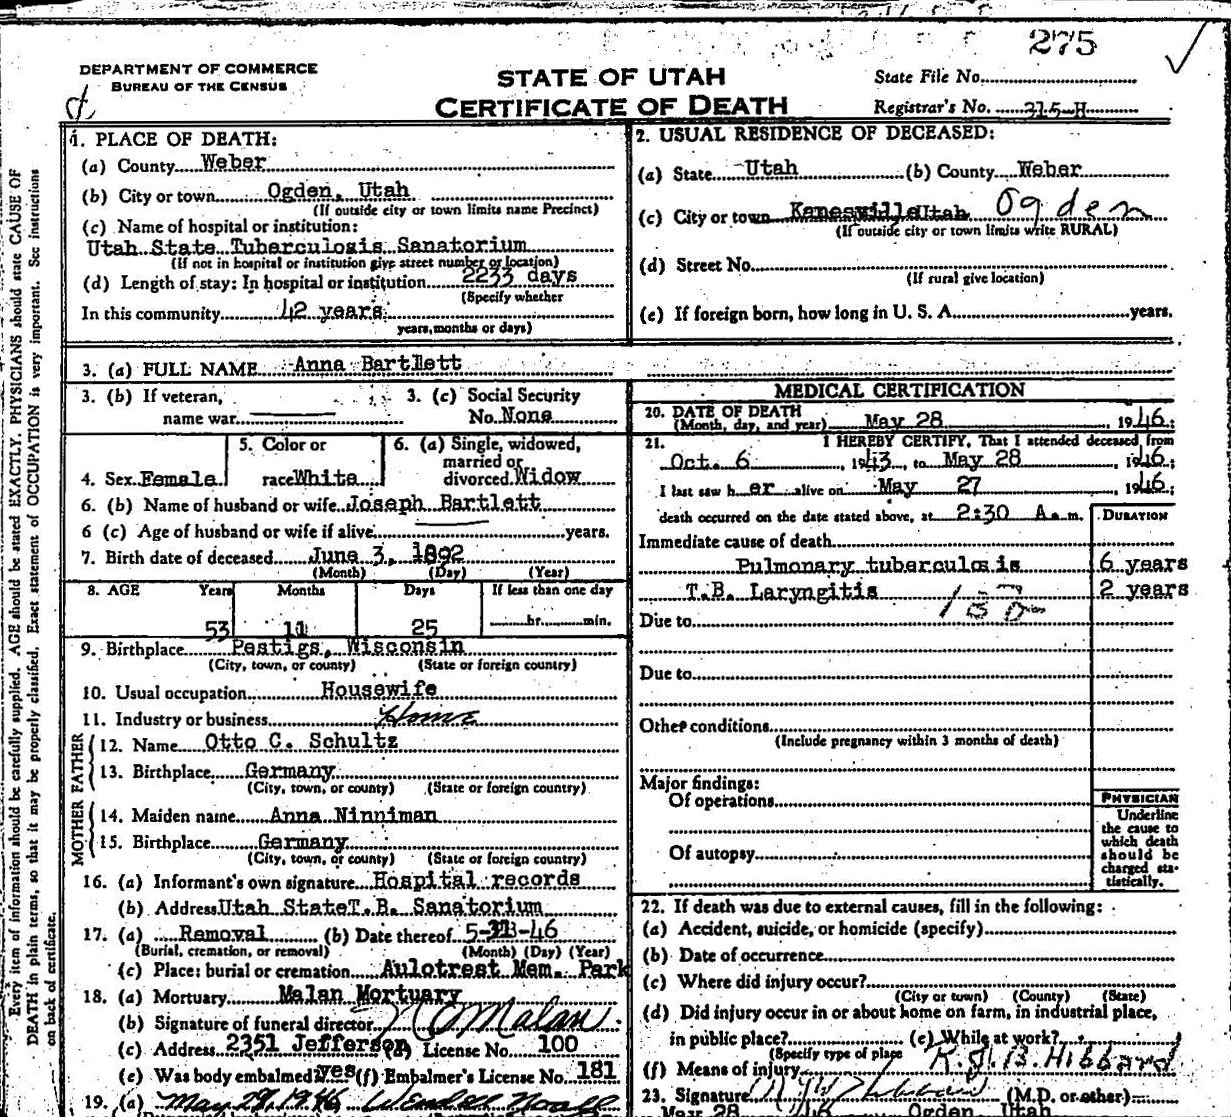 275
DEPARTMENT OF COMMERCE
BUREAU OF THE CENSUS
STATE OF UTAH
CERTIFICATE OF DEATH
State File No.
Registrar's No. 315-H
Every item of information should be carefully supplied. AGE should be stated EXACTLY. PHYSICIANS should state CAUSE OF
DEATH in plain terms, so that it may be properly classified. Exact statement of OCCUPATION is very important. See instructions
on back of certificate.
1. PLACE OF DEATH:
(a) County Weber
(b) City or town Ogden, Utah
(If outside city or town limits name Precinct)
(c) Name of hospital or institution:
Utah State Tuberculosis Sanatorium
(If not in hospital or institution give street number or location)
(d) Length of stay: In hospital or institution 2233 days
(Specify whether
In this community 42 years
years, months or days)
2. USUAL RESIDENCE OF DECEASED:
(a) State Utah (b) County Weber
(c) City or town Kanesville Utah Ogden
(If outside city or town limits write RURAL)
(d) Street No.
(If rural give location)
(e) If foreign born, how long in U. S. A. years.
3. (a) FULL NAME Anna Bartlett
3. (b) If veteran,
name war
3. (c) Social Security
No. None
4. Sex Female
5. Color or
race White
6. (a) Single, widowed,
married or
divorced Widow
6. (b) Name of husband or wife Joseph Bartlett
6 (c) Age of husband or wife if alive years.
7. Birth date of deceased June 3, 1892
(Month) (Day) (Year)
8. AGE Years Months Days If less than one day
53 11 25 hr. min.
9. Birthplace Pestigs, Wisconsin
(City, town, or county) (State or foreign country)
10. Usual occupation Housewife
11. Industry or business Home
FATHER
12. Name Otto C. Schultz
13. Birthplace Germany
(City, town, or county) (State or foreign country)
MOTHER
14. Maiden name Anna Ninniman
15. Birthplace Germany
(City, town, or county) (State or foreign country)
16. (a) Informant's own signature Hospital records
(b) Address Utah State T.B. Sanatorium
17. (a) Removal (b) Date thereof 5-31-46
(Burial, cremation, or removal) (Month) (Day) (Year)
(c) Place: burial or cremation Aulotrest Mem. Park
18. (a) Mortuary Malan Mortuary
(b) Signature of funeral director Malan
(c) Address 2351 Jefferson (d) License No. 100
(e) Was body embalmed yes (f) Embalmer's License No. 181
19. (a) May 29, 1946 Wendell Noall
MEDICAL CERTIFICATION
20. DATE OF DEATH
(Month, day, and year) May 28, 1946;
21. I HEREBY CERTIFY, That I attended deceased from
Oct. 6, 1943, to May 28, 1946;
I last saw her alive on May 27 1946;
death occurred on the date stated above, at 2:30 A.m.
DURATION
Immediate cause of death
Pulmonary tuberculosis 6 years
T.B. Laryngitis 2 years
Due to
Due to
Other conditions
(Include pregnancy within 3 months of death)
Major findings:
Of operations
Of autopsy
PHYSICIAN
Underline
the cause to
which death
should be
charged sta-
tistically.
22. If death was due to external causes, fill in the following:
(a) Accident, suicide, or homicide (specify)
(b) Date of occurrence
(c) Where did injury occur?
(City or town) (County) (State)
(d) Did injury occur in or about home on farm, in industrial place,
in public place? (e) While at work?
(Specify type of place
(f) Means of injury Hibbard
23. Signature (M.D. or other)
46 Ogden Utah